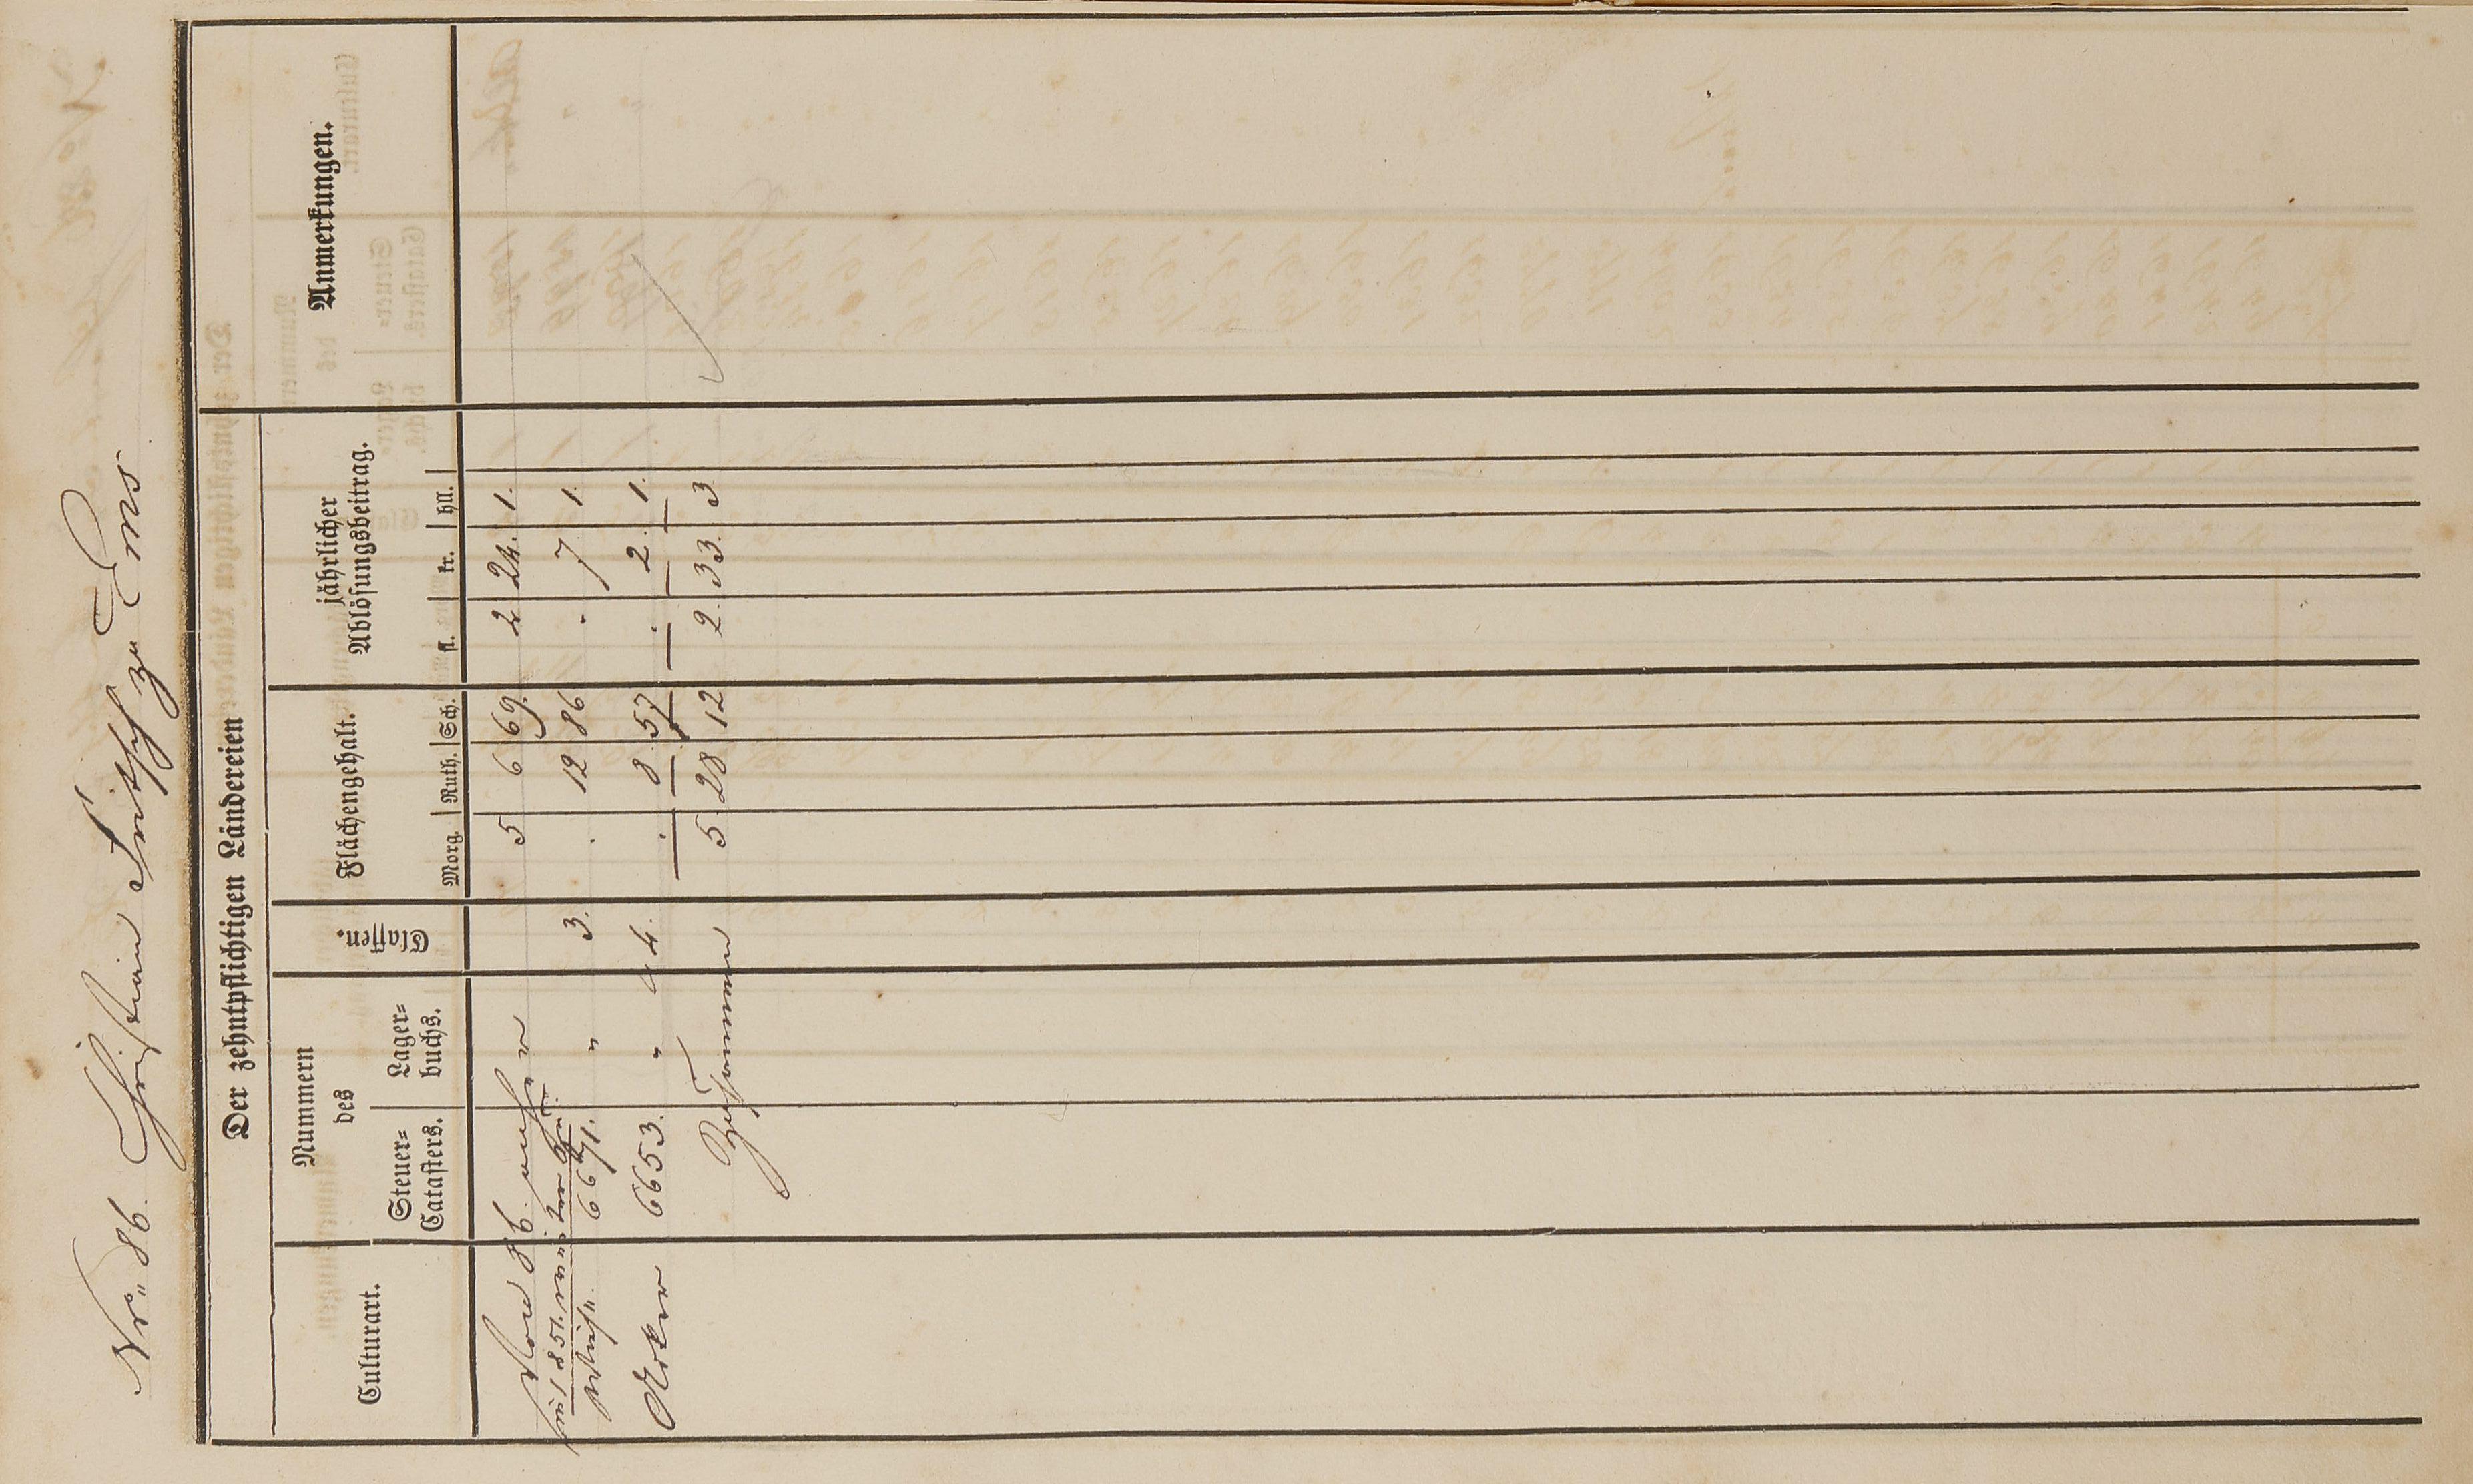 Nro 86. Christian zu Ems
Der zehntpflichtigen Ländereien
Anmerkungen.
Culturart.
Nummern
des
Steuer=
Catasters.
Lager=
buchs.
Classen.
Flächengehalt.
Morg. Ruth. Sch.
jährlicher
Ablösungsbeitrag.
fl. kr. hll.
Von 86. 5 6 69. 2 24. 1.
1851.
6671. " 3. . 12 86 . 7 1.
Acker 6653. " 4. . 8 57 . 2. 1.
Zusammen 5 28 12 2. 33. 3